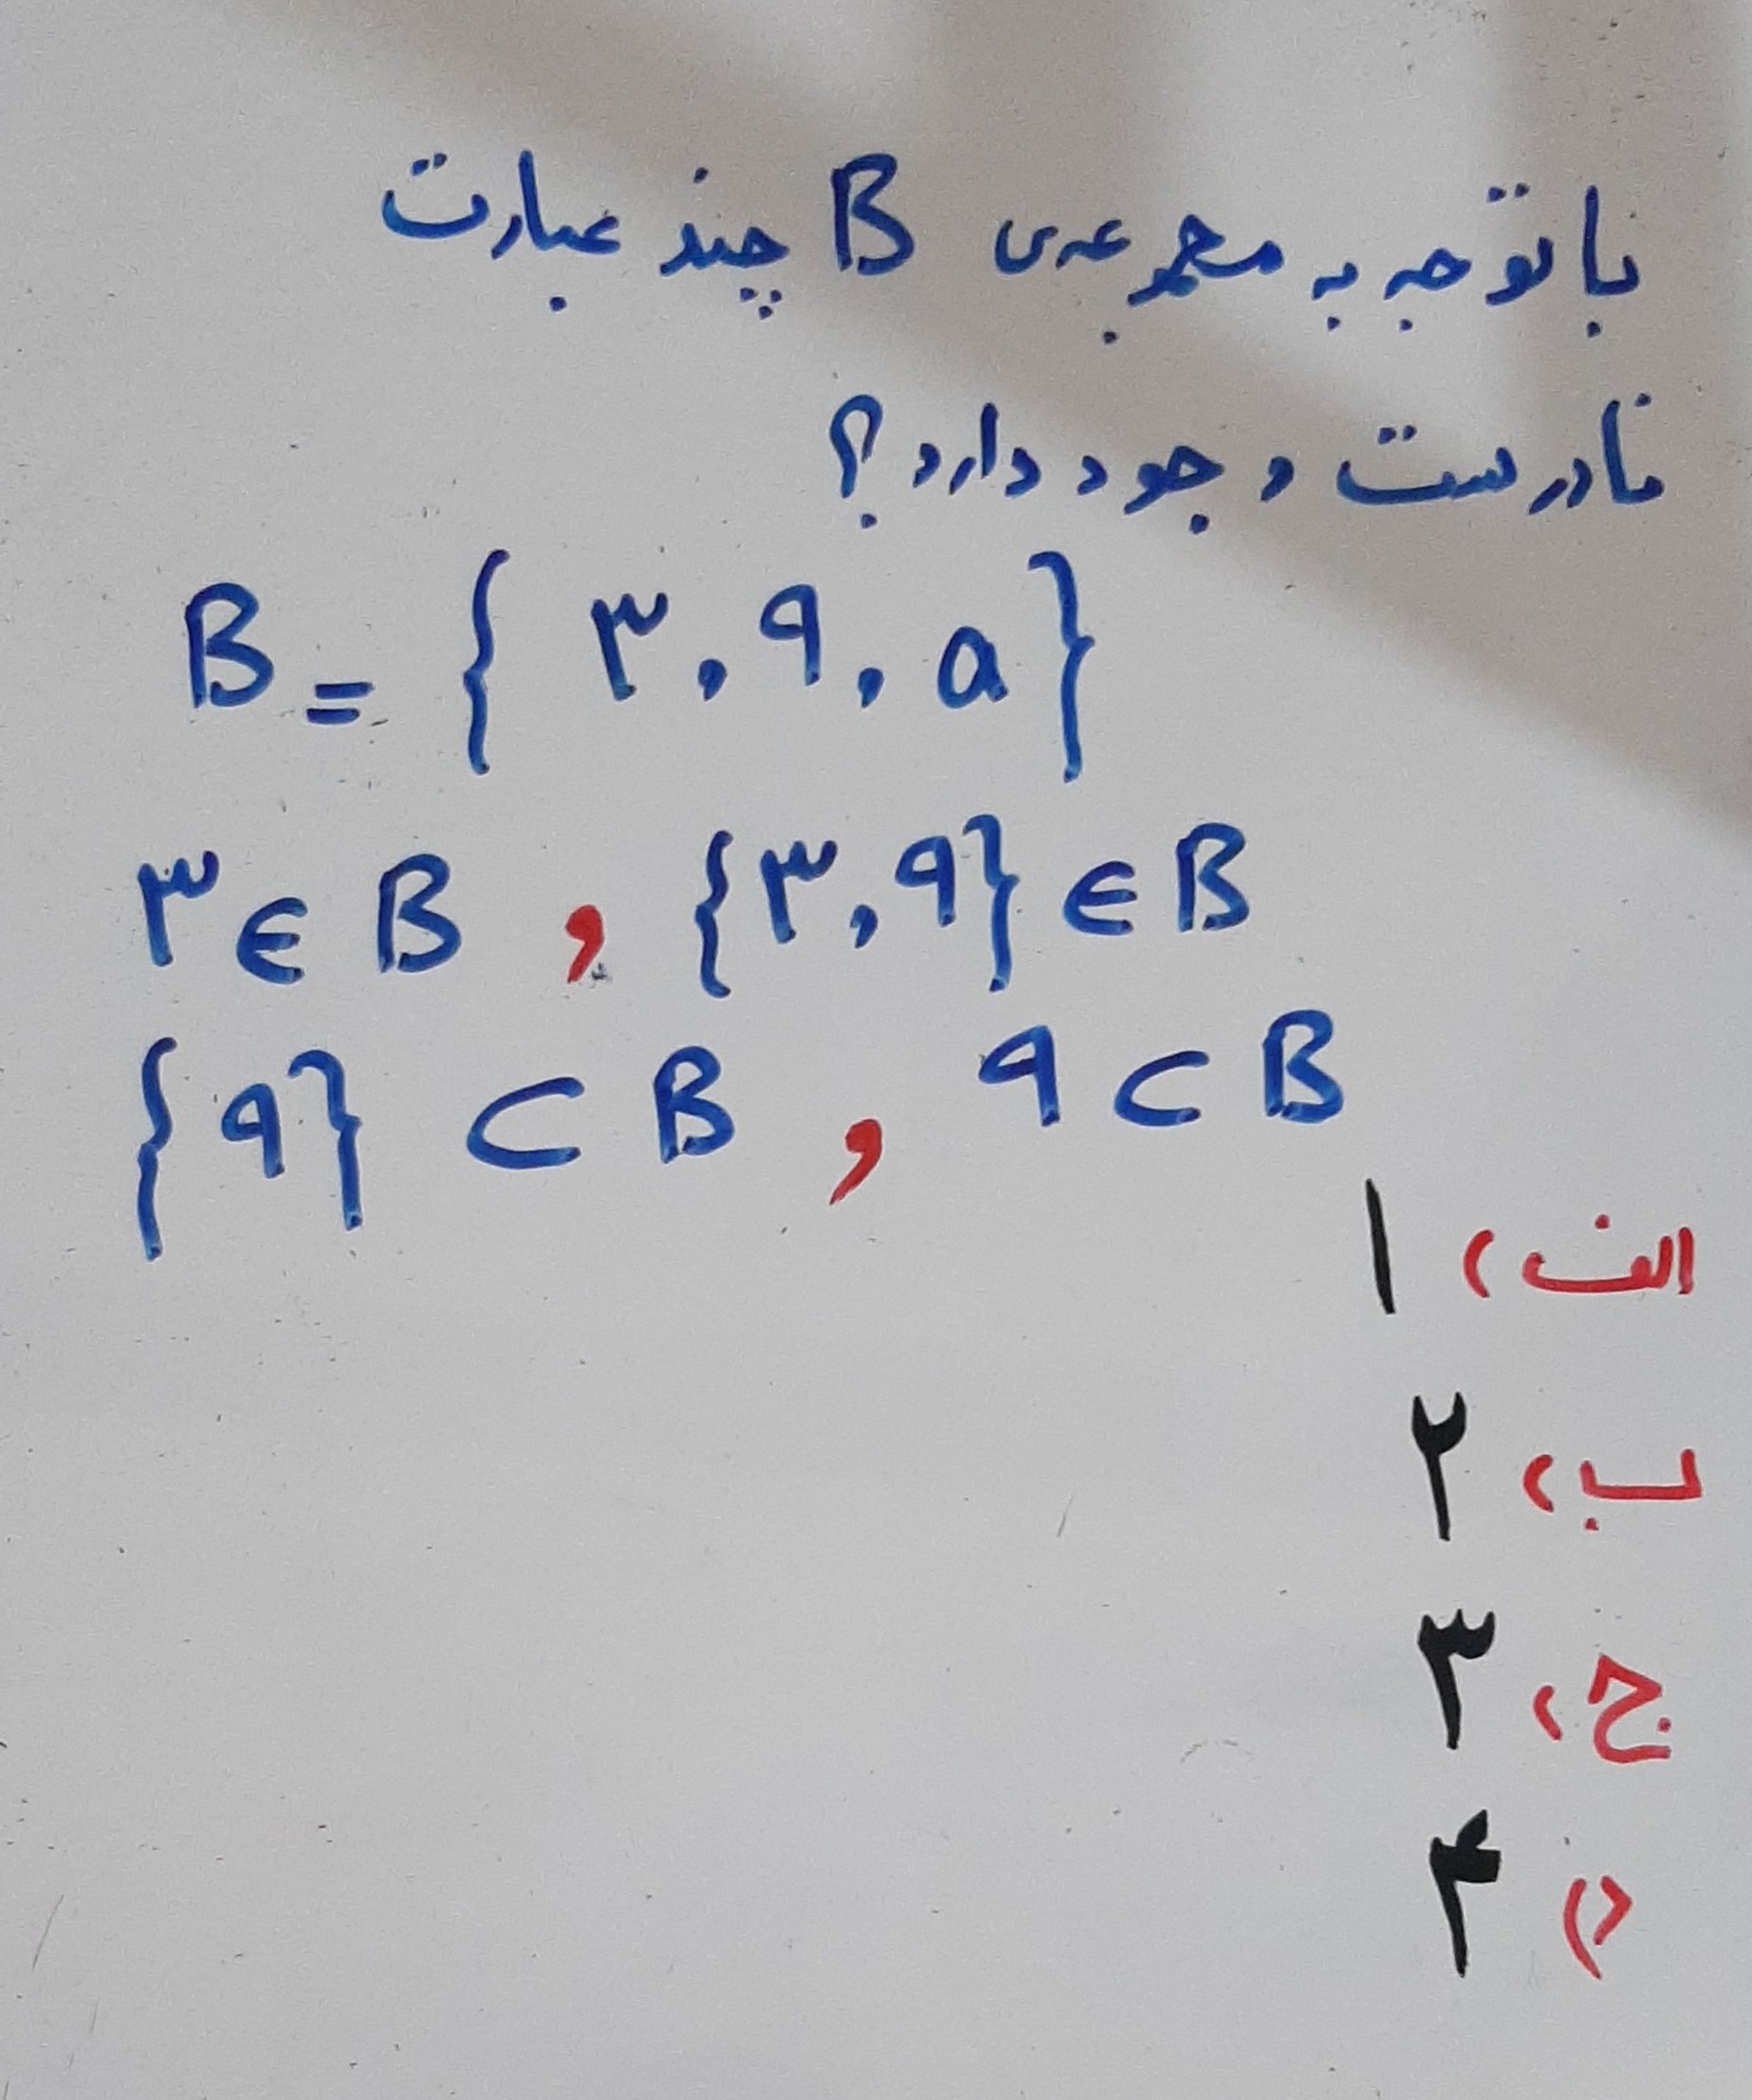 با توجه به مجموعه‌ی B چند عبارت
نادرست وجود دارد؟
B = { ۳ , ۹ , a }
۳ ∈ B , {۳ , ۹} ∈ B
{۹} ⊂ B , ۹ ⊂ B
الف) ۱
ب) ۲
ج) ۳
د) ۴